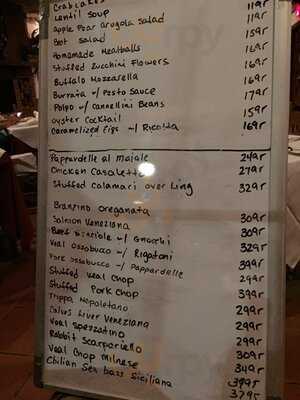 Crabcakes 1195
Lentil Soup 1195
Apple Pear Arugola Salad 1195
Beet Salad 1595
Homemade Meatballs 1695
Stuffed Zucchini Flowers 1695
Buffalo Mozzarella 1695
Burrata w/ Pesto Sauce 1795
Polpo w/ Cannellini Beans
Oyster Cocktail 1595
Caramelized Figs w/ Ricotta 1695
Pappardelle al Maiale 2495
Chicken Casalett 2795
Stuffed Calamari over Ling 3295
Branzino Oreganata
Salmon Veneziana 3095
Beef w/ Gnocchi 3095
Veal Ossobucco w/ Rigatoni 3295
Pork Ossobucco w/ Pappardelle 3995
Stuffed Veal Chop 2995
Stuffed Pork Chop 3995
Trippa Napoletano 2995
Calves Liver Veneziana 2995
Veal Spezzatino 2995
Rabbit Scarpariello 3095
Veal Chop Milnese 3495
Chilian Sea bass Siciliana 3995
3795